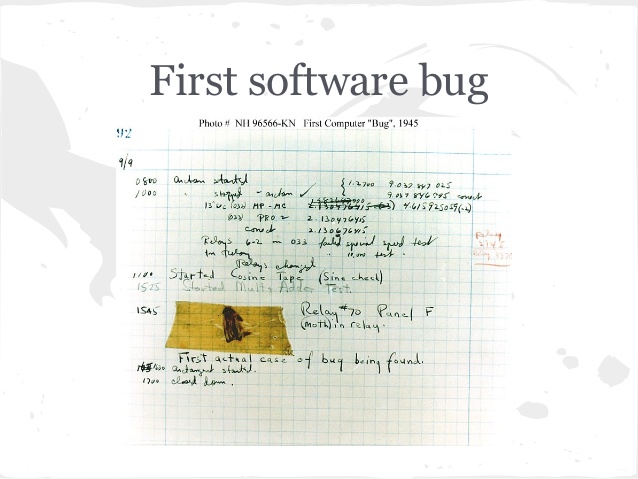 First software bug
Photo # NH 96566-KN First Computer "Bug", 1945
92
9/9
0800 Antan started
1000 " stopped - antan ✓ { 1.2700 9.037 847 025
9.037 846 995 correct
13"uc (032) MP - MC 4.615925059(-2)
(033) PRO 2 2.130476415
correct 2.130676415
Relays 6-2 in 033 failed special speed test
in relay " 10,000 test .
Relays changed
1100 Started Cosine Tape (Sine check)
1525 Started Multi Adder Test.
1545 Relay #70 Panel F
(moth) in relay.
First actual case of bug being found.
1630 antangent started.
1700 closed down .